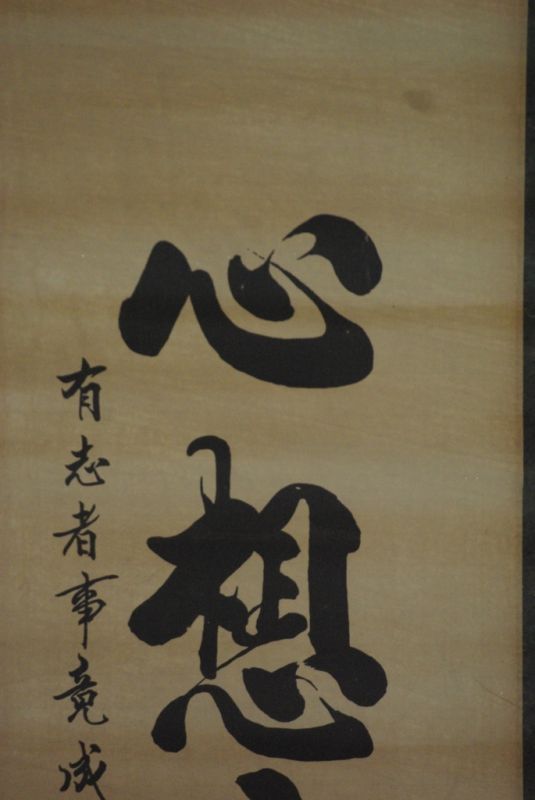 心想
有志者事竟成